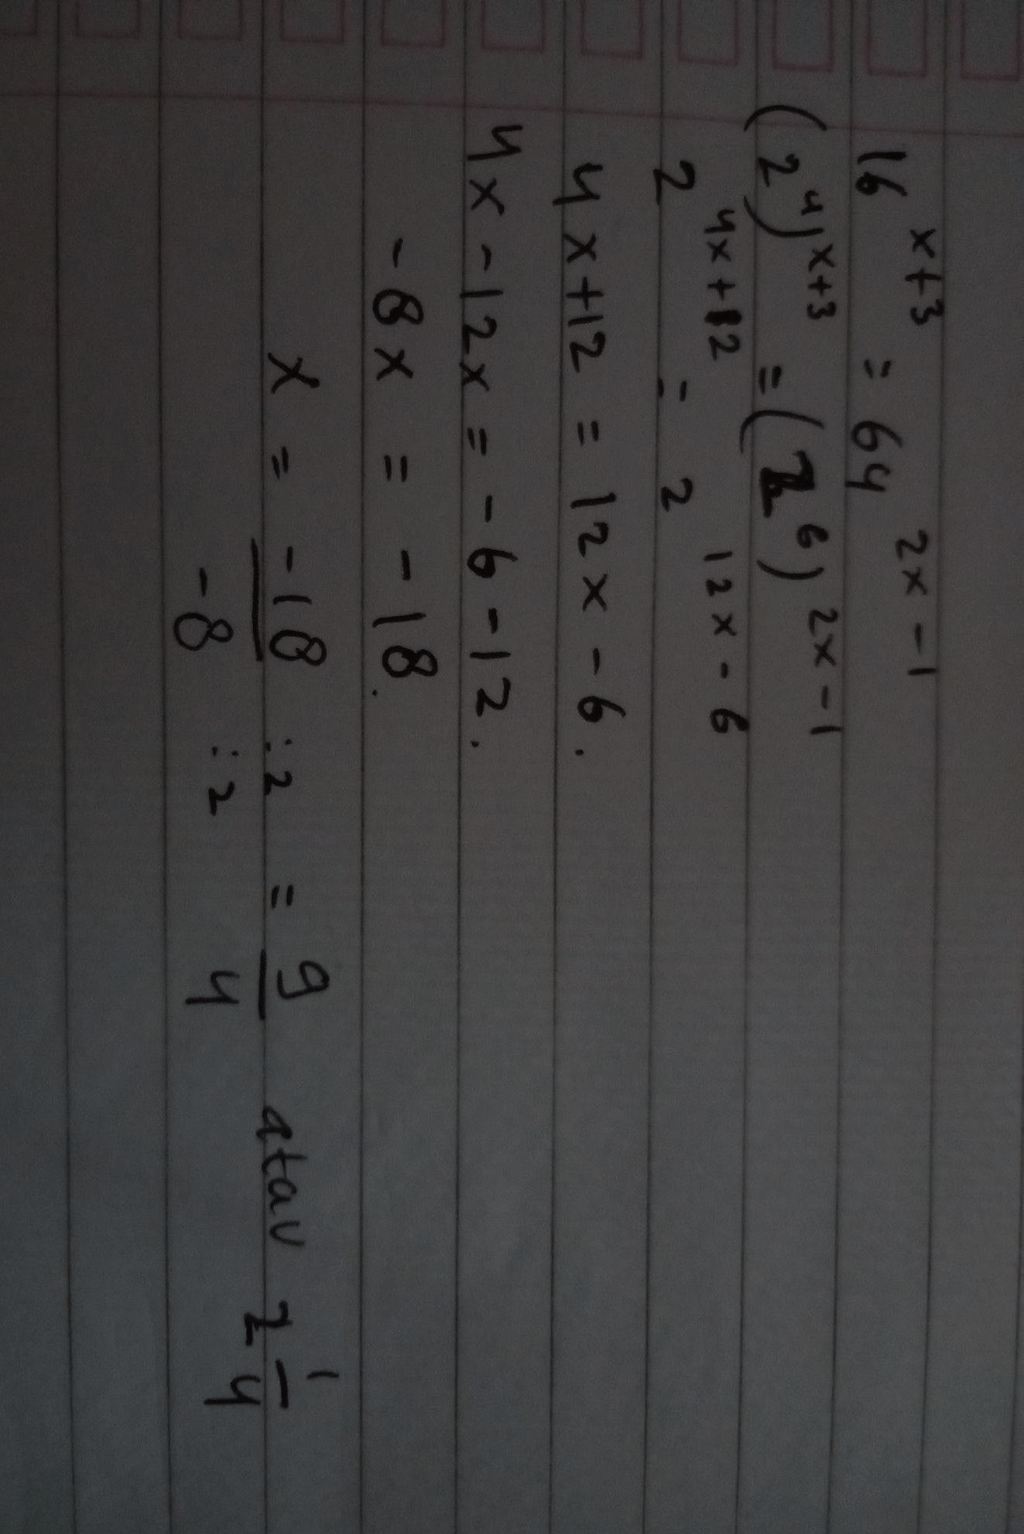 16^(x+3) = 64^(2x-1)
(2^4)^(x+3) = (2^6)^(2x-1)
2^(4x+12) = 2^(12x-6)
4x+12 = 12x-6.
4x-12x = -6-12.
-8x = -18.
x = -18/-8 :2/:2 = 9/4 atau 2 1/4